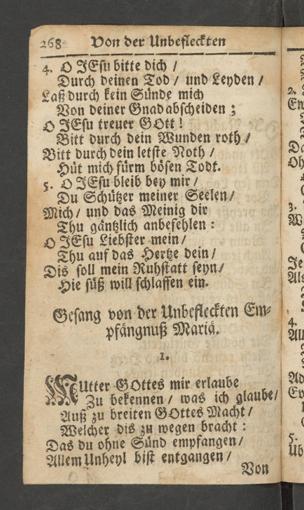 268 Von der Unbefleckten
4. O JEsu bitte dich /
Durch deinen Tod / und Leyden /
Laß durch kein Sünde mich
Von deiner Gnad abscheiden ;
O JEsu treuer GOtt !
Bitt durch dein Wunden roth /
Bitt durch dein letste Noth /
Hüt mich fürm bösen Todt.
5. O JEsu bleib bey mir /
Du Schützer meiner Seelen /
Mich / und das Meinig dir
Thu gäntzlich anbefehlen :
O JEsu Liebster mein /
Thu auf das Hertze dein /
Dis soll mein Ruhstatt seyn /
Hie süß will schlaffen ein.
Gesang von der Unbefleckten Em-
pfängnuß Mariä.
1.
MUtter GOttes mir erlaube
Zu bekennen / was ich glaube /
Auß zu breiten GOttes Macht /
Welcher dis zu wegen bracht :
Das du ohne Sünd empfangen /
Allem Unheyl bist entgangen /
Von